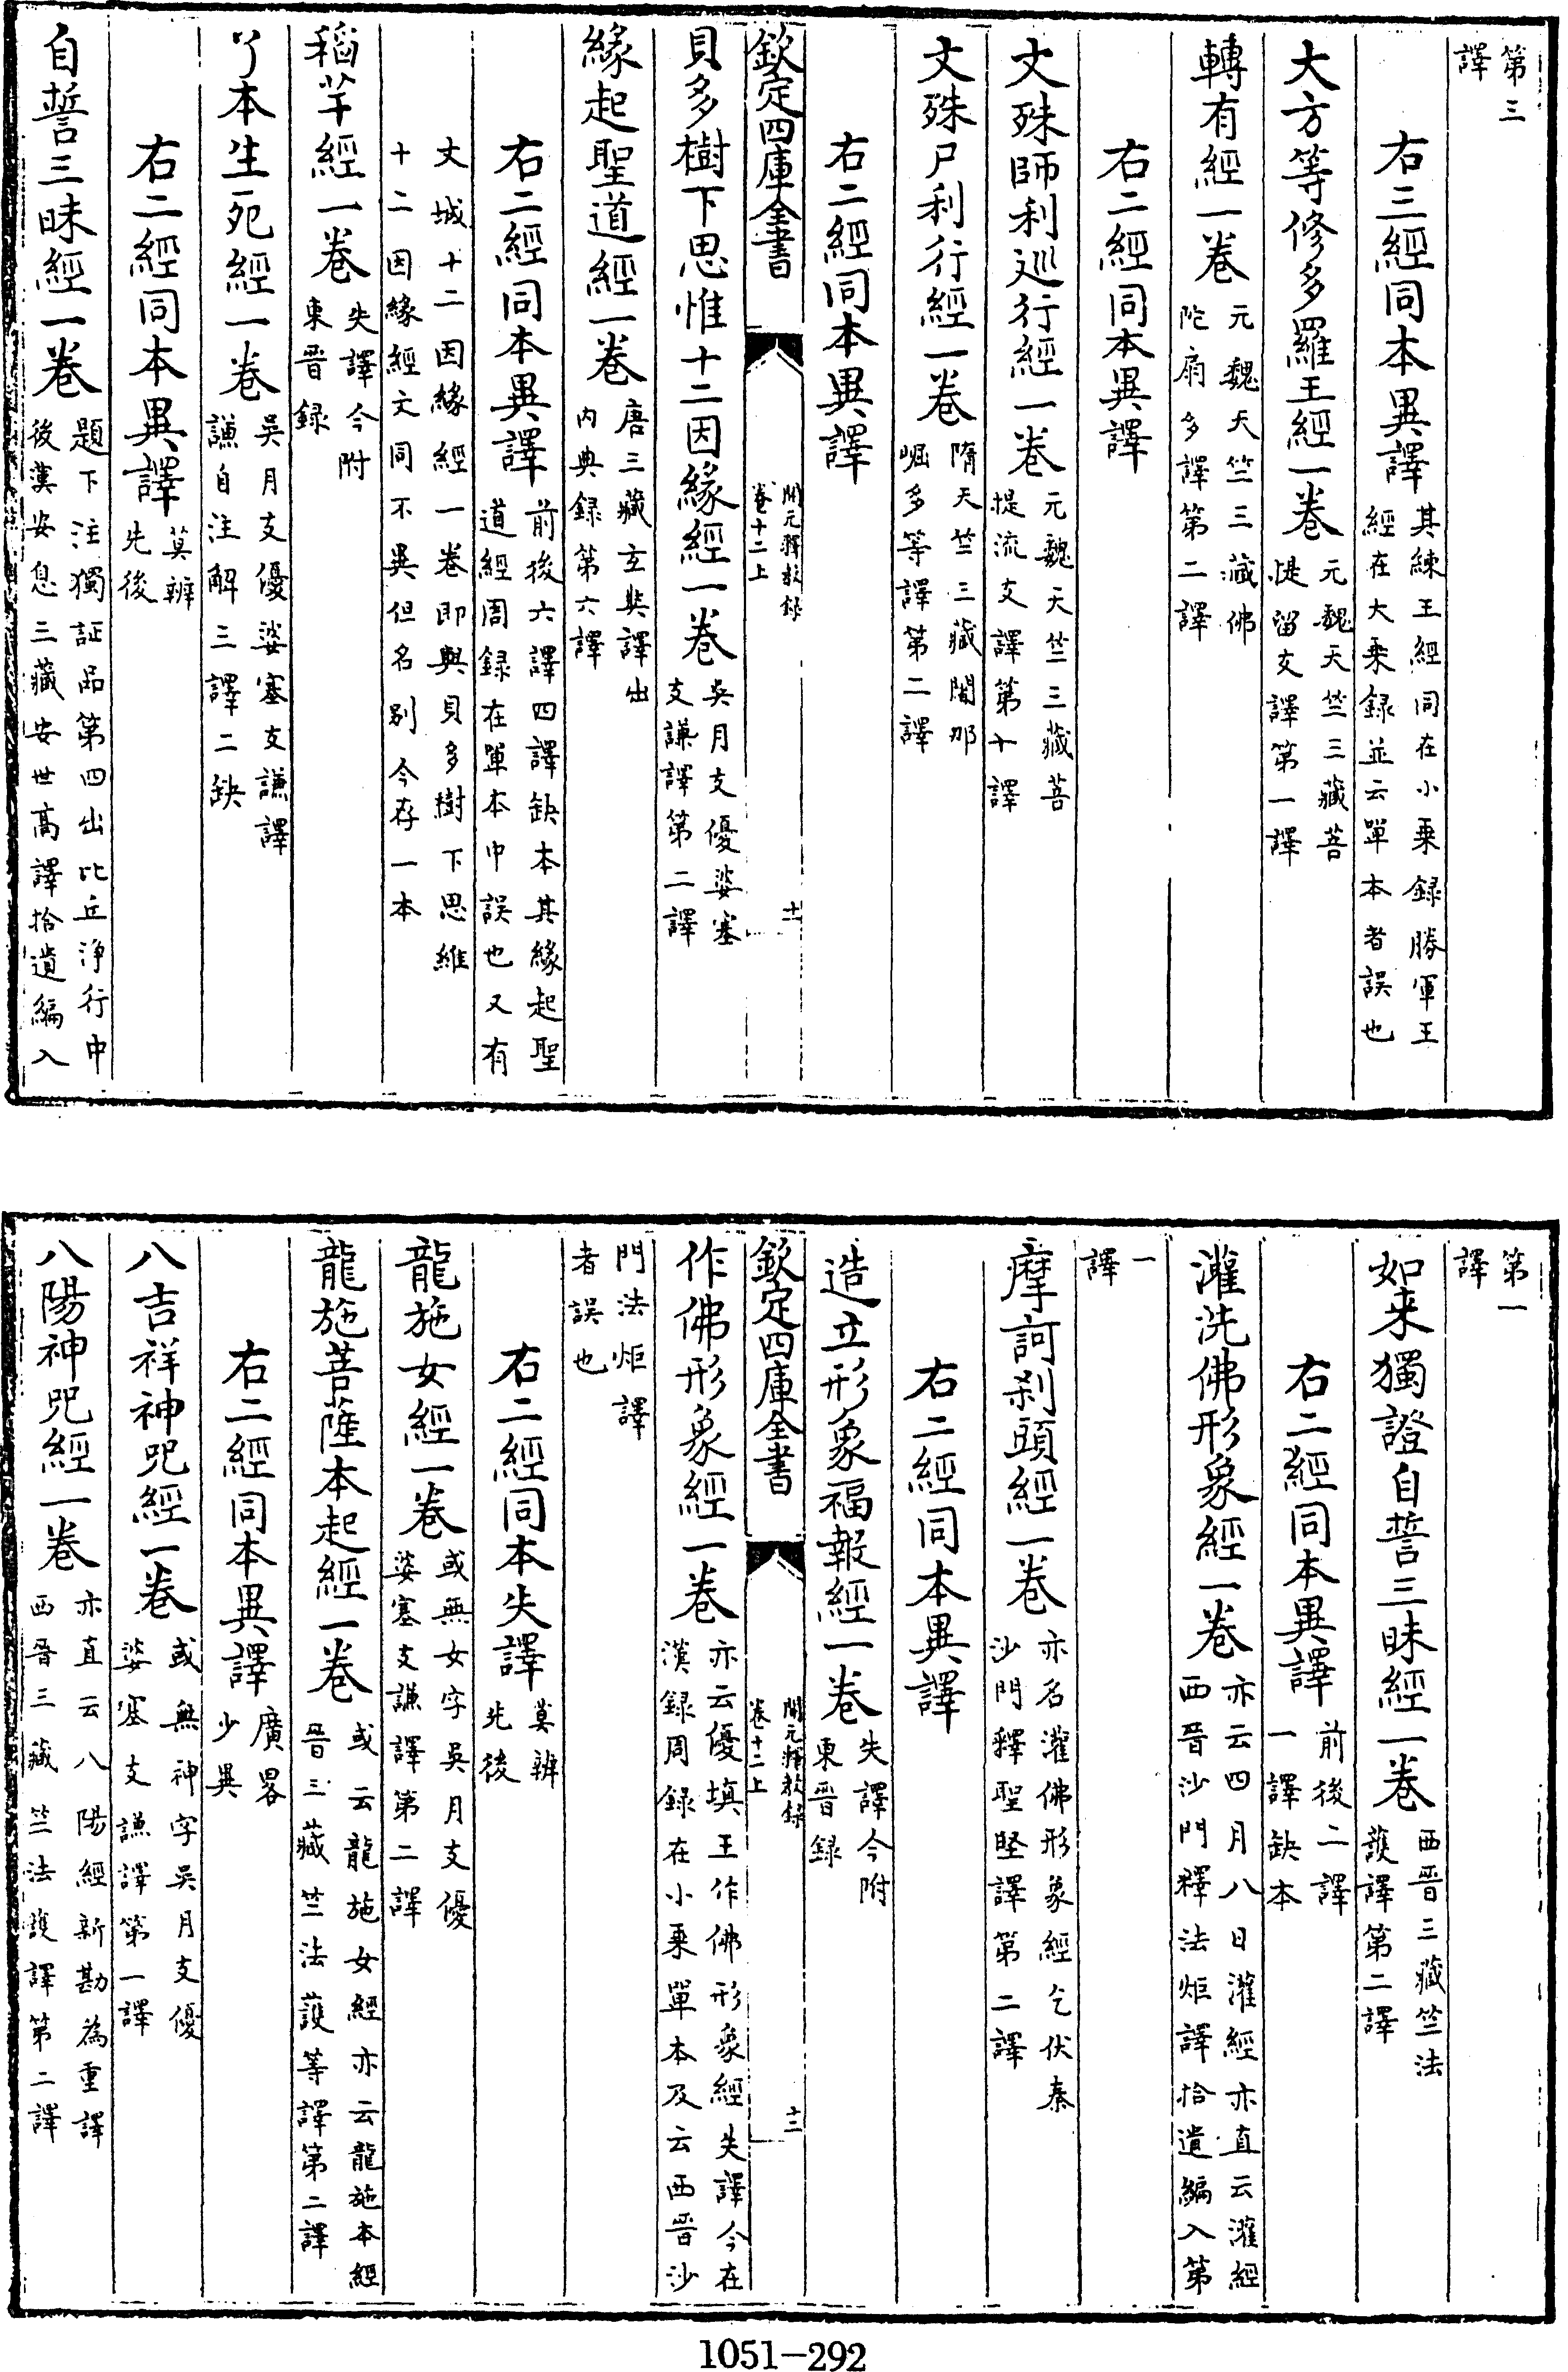 第三
譯
右三經同本異譯其練王經同在小乘録勝軍王
經在大乘録並云單本者誤也
大方等修多羅王經一卷元魏天竺三藏菩
提留支譯第一譯
轉有經一卷元魏天竺三藏佛
陀扇多譯第二譯
右二經同本異譯
文殊師利巡行經一卷元魏天竺三藏菩
提流支譯第十譯
文殊尸利行經一卷隋天竺三藏闍那
崛多等譯第二譯
右二經同本異譯
欽定四庫全書
開元釋教録
卷十二上
十一
貝多樹下思惟十二因緣經一卷吳月支優婆塞
支謙譯第二譯
緣起聖道經一卷唐三藏玄奘譯出
内典録第六譯
右二經同本異譯前後六譯四譯缺本其緣起聖
道經周録在單本中誤也又有
文城十二因緣經一卷即與貝多樹下思維
十二因緣經文同不異但名别今存一本
稻芉經一卷失譯今附
東晉録
了本生死經一卷吳月支優婆塞支謙譯
謙自注解三譯二缺
右二經同本異譯莫辨
先後
自誓三昧經一卷題下注獨証品第四出比丘淨行中
後漢安息三藏安世高譯拾遺編入
第一
譯
如来獨證自誓三昧經一卷西晉三藏竺法
護譯第二譯
右二經同本異譯前後二譯
一譯缺本
灌洗佛形象經一卷亦云四月八日灌經亦直云灌經
西晉沙門釋法炬譯拾遺編入第
一
譯
摩訶刹頭經一卷亦名灌佛形象經乞伏秦
沙門釋聖堅譯第二譯
右二經同本異譯
造立形象福報經一卷失譯今附
東晉録
欽定四庫全書
開元釋教録
卷十二上
十二
作佛形象經一卷亦云優填王作佛形象經失譯今在
漢録周録在小乘單本及云西晉沙
門法炬譯
者誤也
右二經同本失譯莫辨
先後
龍施女經一卷或無女字吳月支優
婆塞支謙譯第二譯
龍施菩薩本起經一卷或云龍施女經亦云龍施本經
晉三藏竺法護等譯第二譯
右二經同本異譯廣畧
少異
八吉祥神咒經一卷或無神字吳月支優
婆塞支謙譯第一譯
八陽神咒經一卷亦直云八陽經新勘為重譯
西晉三藏竺法護譯第二譯
1051-292